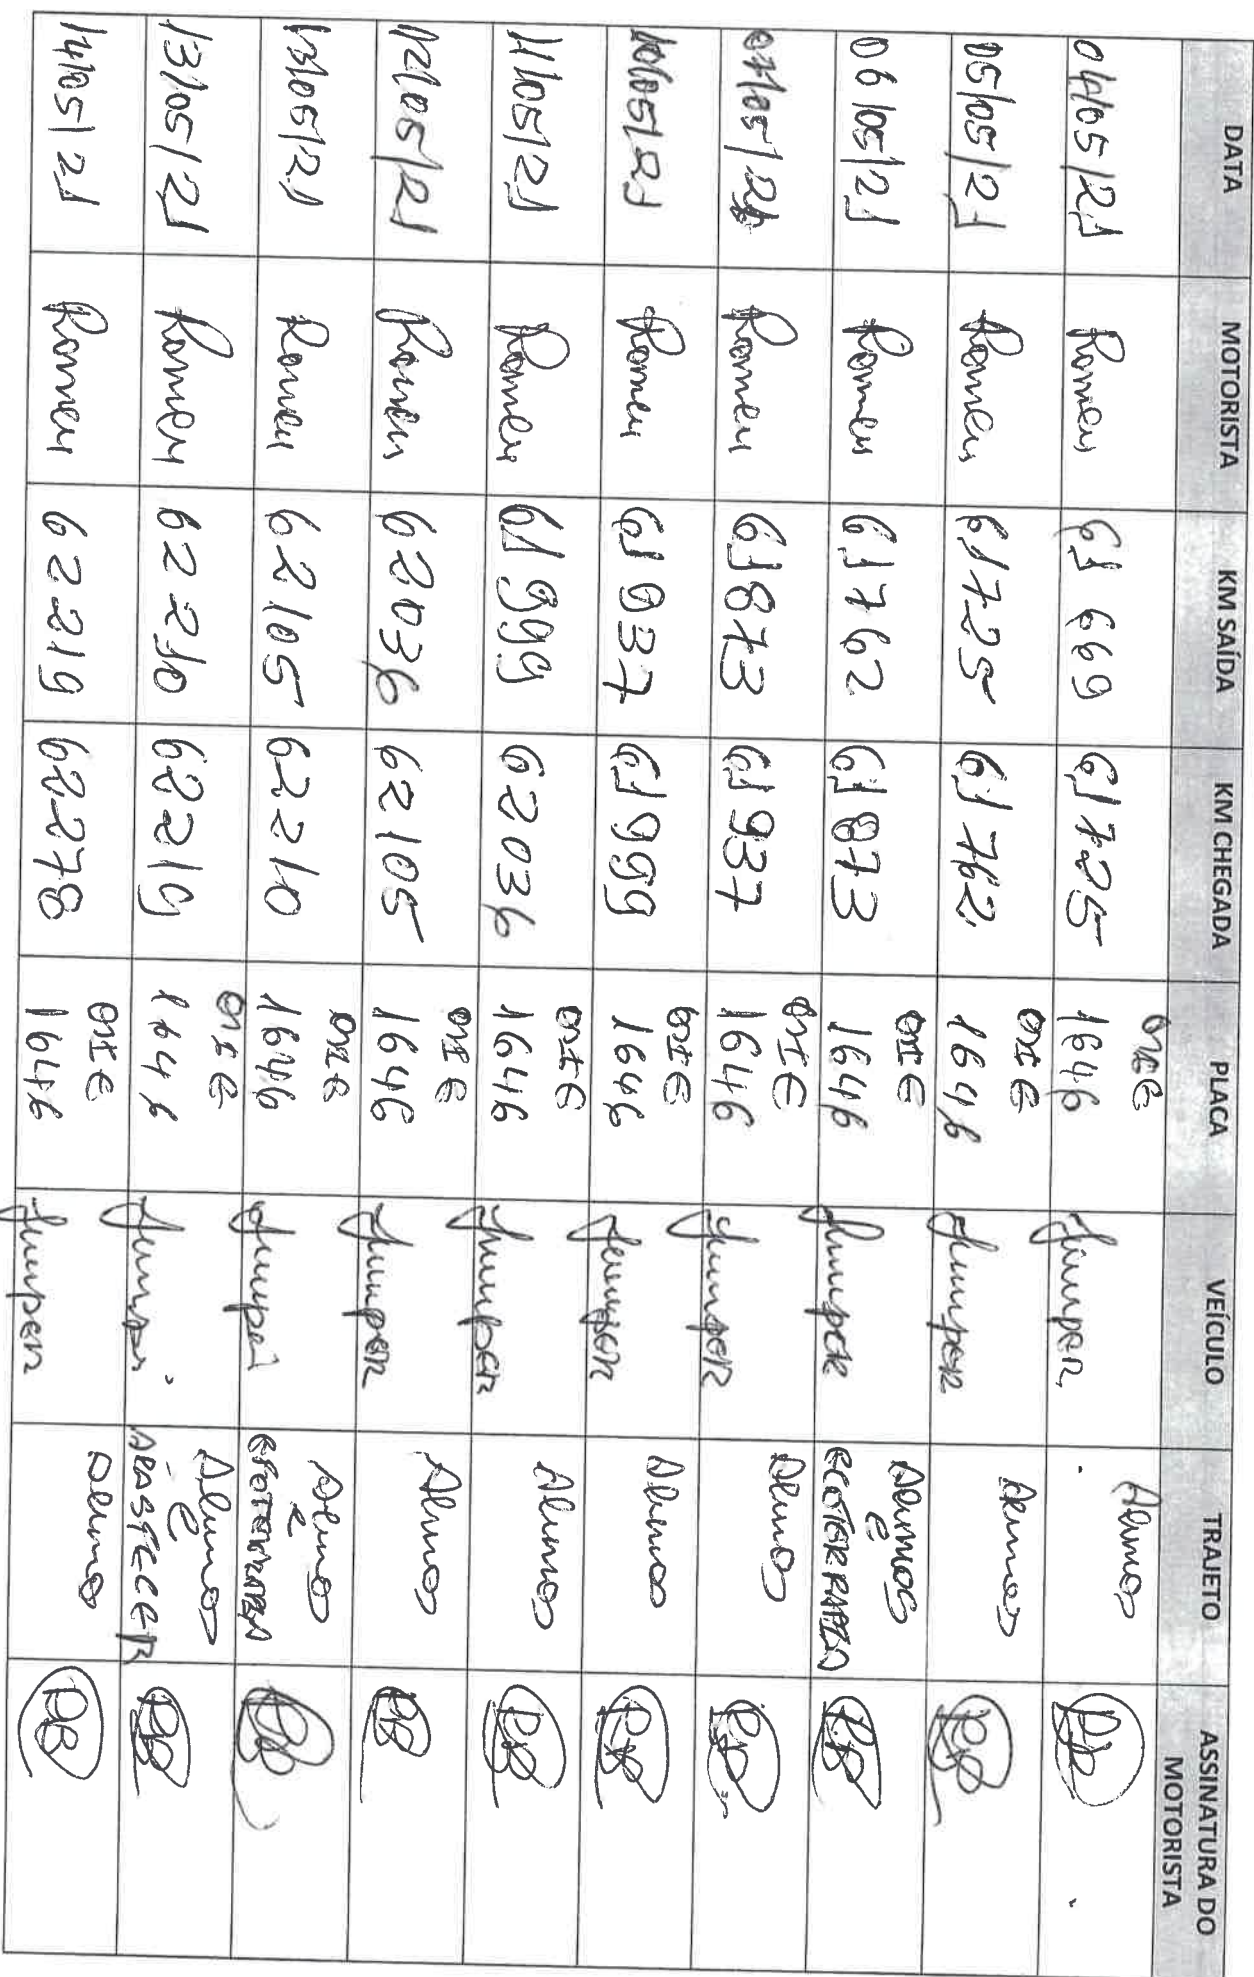 DATA MOTORISTA KM SAÍDA KM CHEGADA PLACA VEÍCULO TRAJETO ASSINATURA DO MOTORISTA
04/05/21 Romeu 61669 61725 OKE 1646 Jumper Alunos
05/05/21 Romeu 61725 61762 1646 Jumper Alunos
06/05/21 Romeu 61762 61873 1646 Jumper Alunos e ECOTERAPIA
07/05/21 Romeu 61873 61937 1646 Jumper Alunos
10/05/21 Romeu 61937 61999 1646 Jumper Alunos
11/05/21 Romeu 61999 62036 1646 Jumper Alunos
12/05/21 Romeu 62036 62105 1646 Jumper Alunos
13/05/21 Romeu 62105 62210 1646 Jumper Alunos e
13/05/21 Romeu 62210 62219 1646 Jumper Alunos e
14/05/21 Romeu 62219 62278 1646 Jumper Alunos